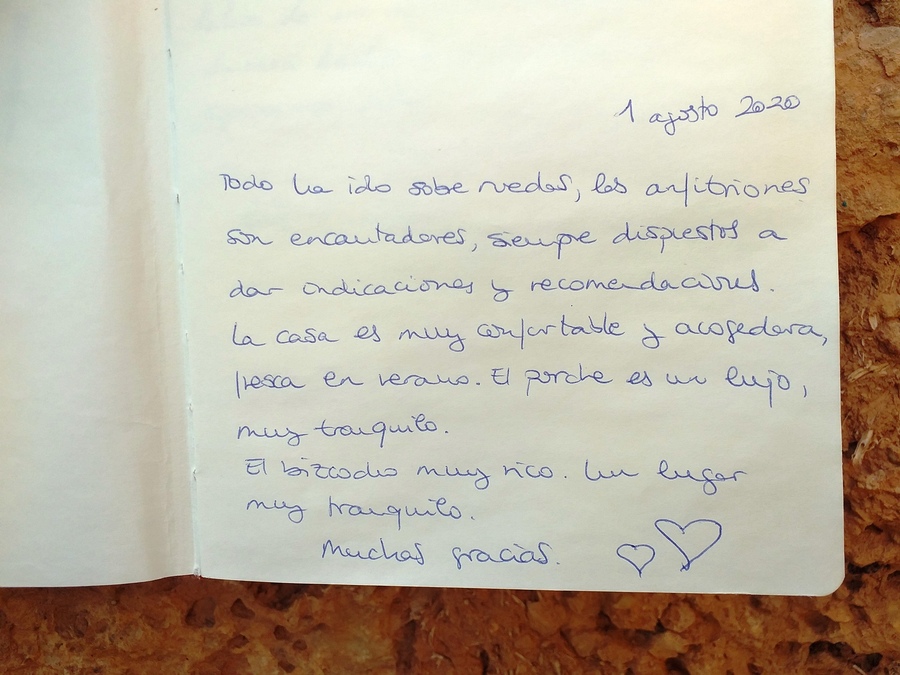 1 agosto 2020
Todo ha ido sobre ruedas, los anfitriones
son encantadores, siempre dispuestos a
dar indicaciones y recomendaciones.
La casa es muy confortable y acogedora,
fresca en verano. El porche es un lujo,
muy tranquilo.
El bizcocho muy rico. Un lugar
muy tranquilo.
Muchas gracias.